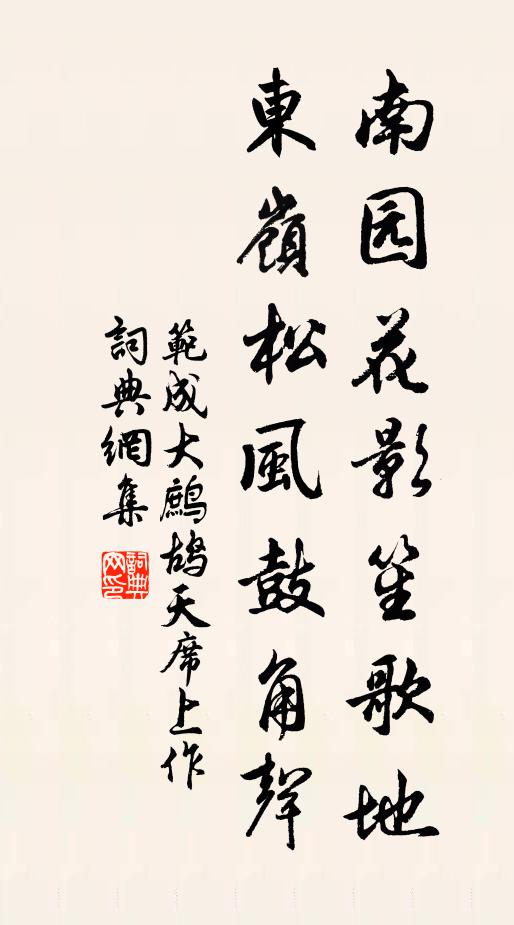 南园花影笙歌地
東嶺松風鼓角聲
範成大鷓鴣天席上作
詞典網集
詞典
网印